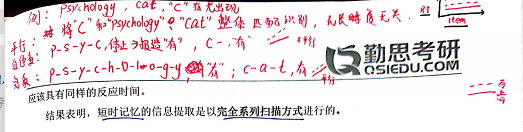 例: psychology, cat, "C"有无出现
平行: 将"C"和"psychology"?"cat"整体匹配识别, 无长时度无关. RT
item
自停: p-s-y-c, 停止并报告"有", c-, "有"
完系: p-s-y-c-h-o-l-o-g-y, "有"; c-a-t, 有
不平行
勤思考研
QSIEDU.COM
应该具有同样的反应时间。
结果表明，短时记忆的信息提取是以完全系列扫描方式进行的。